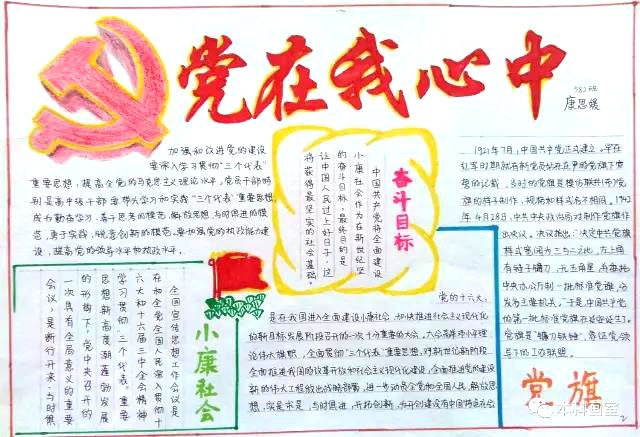 党在我心中
982班
康思媛
加强和改进党的建设
要深入学习贯彻“三个代表”
重要思想，提高全党的马克思主义理论水平。党员干部特
别是高中级干部要带头学习和实践“三个代表”重要思想，
成为勤奋学习、善于思考的模范，解放思想、与时俱进的模
范，勇于实践、锐意创新的模范。要加强党的执政能力建
设，提高党的领导水平和执政水平。
奋斗目标
中国共产党将全面建设
小康社会作为在新世纪坚
的奋斗目标，最终目的是
让中国人民过上好日子，这
将获得最坚实的社会基础。
1921年7月，中国共产党正式建立。早在
红军时期就有新党员站在庄严的党旗下宣
誓的记载，当时的党旗是模仿联共(布)党
旗的样子制作，规格和样式各不相同。1942
年4月28日，中共中央政治局对制作党旗作
出决议。决议指出：“决定中共党旗
样式宽阔为三与二之比，左上角
有锤子镰刀，无五角星，委托
中央办公厅制一批标准党旗，分
发各主要机关。”于是，中国共产党
的第一批标准党旗在延安诞生了。
党旗
小康社会
全国宣传思想工作会议是
在和全党全国人民深入贯彻十
六大和十六届三中全会精神
学习贯彻“三个代表”重要
思想新高度潮蓬勃发展
的形势下，党中央召开的
一次具有全局意义的重要
会议，是断行开来、与时俱
党的十六大，
是在我国进入全面建设小康社会，加快推进社会主义现代化
的新目标发展阶段召开的一次十分重要的大会。大会高举邓小平理
论伟大旗帜，全面贯彻“三个代表”重要思想，
全面推进我国的改革开放和社会主义现代化建设，全面推进党的建设
新的伟大工程作出战略部署，进一步动员全党和全国人民，解放思
想，实是求是，与时俱进，开拓创新，为开创建设有中国特色社会
本科画室